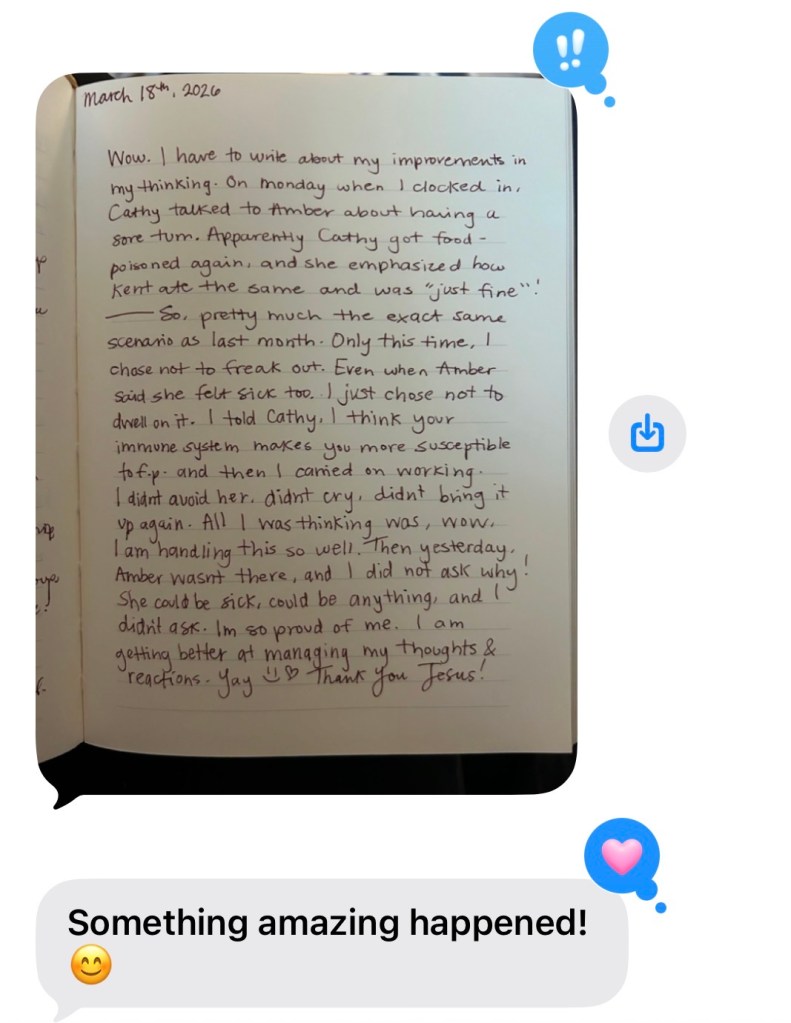 March 18th, 2026
Wow. I have to write about my improvements in
my thinking. On Monday when I clocked in,
Cathy talked to Amber about having a
sore tum. Apparently Cathy got food-
poisoned again, and she emphasized how
Kent ate the same and was "just fine"!
— So, pretty much the exact same
scenario as last month. Only this time, I
chose not to freak out. Even when Amber
said she felt sick too. I just chose not to
dwell on it. I told Cathy, I think your
immune system makes you more susceptible
to f.p. and then I carried on working.
I didnt avoid her, didnt cry, didnt bring it
up again. All I was thinking was, wow,
I am handling this so well. Then yesterday,
Amber wasnt there, and I did not ask why!
She could be sick, could be anything, and I
didnt ask. Im so proud of me. I am
getting better at managing my thoughts &
reactions. Yay Thank You Jesus!
Something amazing happened!
😊